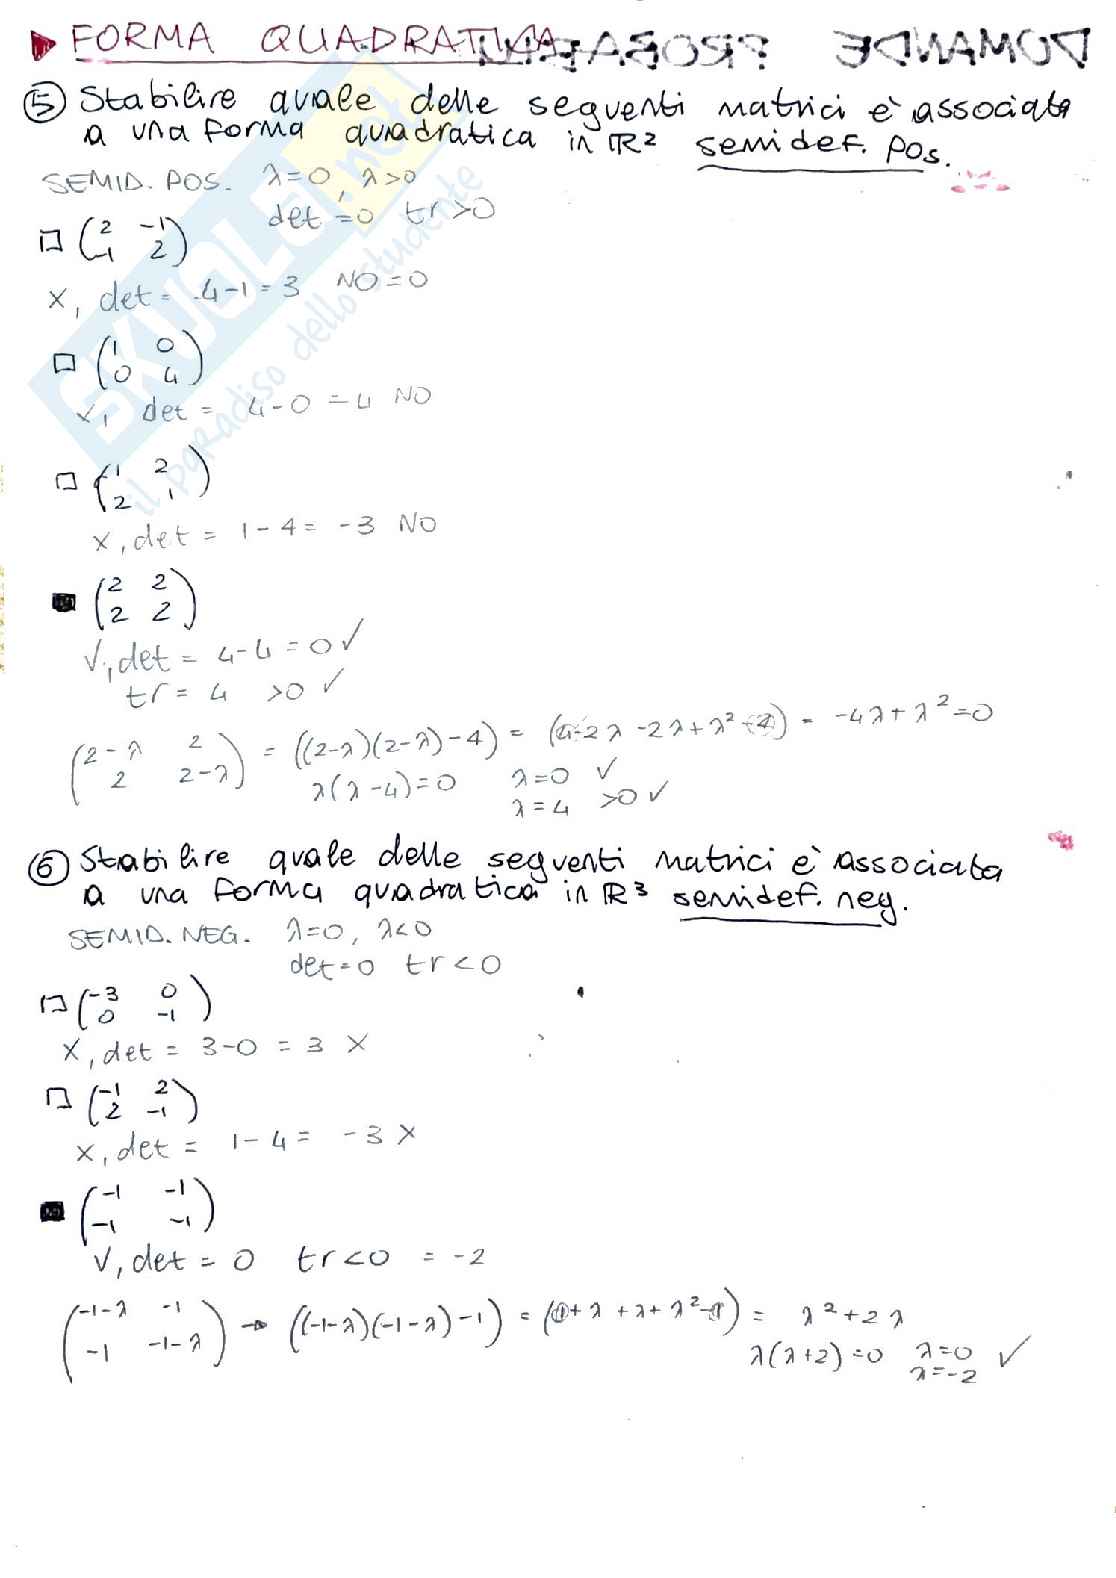 FORMA QUADRATICA
DOMANDE
5 Stabilire quale delle seguenti matrici è associata
a una forma quadratica in ℝ² semidef. pos.
SEMID. POS. λ=0, λ>0
det=0 tr>0
□ (2 -1
-1 2)
x, det = 4-1 = 3 NO = 0
□ (1 0
0 4)
x, det = 4-0 = 4 NO
□ (1 2
2 1)
x, det = 1-4 = -3 NO
■ (2 2
2 2)
V, det = 4-4 = 0 ✓
tr = 4 >0 ✓
(2-λ 2
2 2-λ) = ((2-λ)(2-λ)-4) = (4-2λ-2λ+λ²-4) = -4λ+λ²=0
λ(λ-4)=0 λ=0 ✓
λ=4 >0 ✓
6 Stabilire quale delle seguenti matrici è associata
a una forma quadratica in ℝ³ semidef. neg.
SEMID. NEG. λ=0, λ<0
det=0 tr<0
□ (-3 0
0 -1)
X, det = 3-0 = 3 X
□ (-1 2
2 -1)
x, det = 1-4 = -3 X
■ (-1 -1
-1 -1)
V, det = 0 tr<0 = -2
(-1-λ -1
-1 -1-λ) → ((-1-λ)(-1-λ)-1) = (1+λ+λ+λ²-1) = λ²+2λ
λ(λ+2)=0 λ=0
λ=-2 ✓
SKUOLA.net
il paradiso dello studente